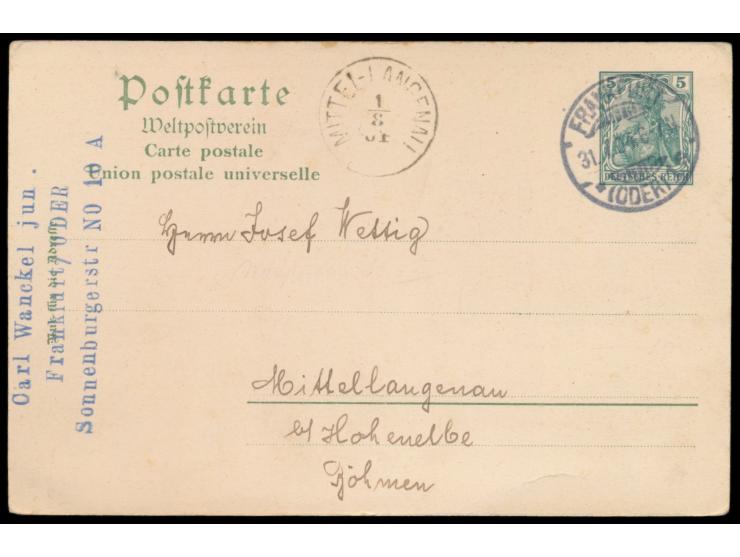 Postkarte
Weltpostverein
Carte postale
Union postale universelle
MITTEL-LANGENAU
1
8
04
5 5
DEUTSCHES REICH
FRANKFURT
31.
(ODER)
Carl Wanckel jun.
Frankfurt/ODER
Sonnenburgerstr NO 10 A
Nur für die Adresse
Herrn Josef Wettig
Mittellangenau
b/ Hohenelbe
Böhmen